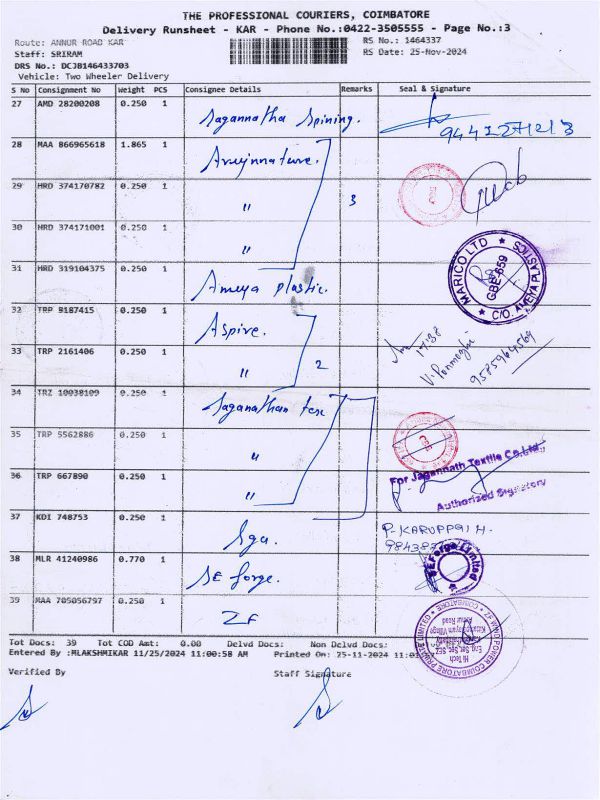 THE PROFESSIONAL COURIERS, COIMBATORE
Delivery Runsheet - KAR - Phone No.:0422-3505555 - Page No.:3
Route: ANNUR ROAD KAR
RS No.: 1464337
Staff: SRIRAM
RS Date: 25-Nov-2024
DRS No.: DCJB146433703
Vehicle: Two Wheeler Delivery
S No Consignment No Weight PCS Consignee Details Remarks Seal & Signature
27 AMD 28200208 0.250 1 Jagannatha Spining.
28 MAA 866965618 1.865 1
29 HRD 374170782 0.250 1 " 3
30 HRD 374171001 0.250 1 "
MARICO LTD
GBE-659
C/O. AMEYA PLASTICS
31 HRD 319104375 0.250 1 Ameya plastic.
32 TRP 9187415 0.250 1 Aspire.
17:38
33 TRP 2161406 0.250 1 " 2
V. Ponmeghi
9585964569
34 TRZ 10038109 0.250 1 Jaganathan tex
35 TRP 5562886 0.250 1 "
For Jagannath Textile Co.Ltd.,
36 TRP 667890 0.250 1 "
Authorised Signatory
37 KDI 748753 0.250 1 Sga.
P. KARUPPAIH.
38 MLR 41240986 0.770 1 SE forge.
SE Forge Limited
39 MAA 705056797 0.250 1 ZF
ZF WIND POWER COIMBATORE PRIVATE LIMITED
COIMBATORE
Hi Tech
Eng Sec SEZ
Annur Road
Tot Docs: 39 Tot COD Amt: 0.00 Delvd Docs: Non Delvd Docs:
Entered By :MLAKSHMIKAR 11/25/2024 11:00:58 AM Printed On: 25-11-2024
Verified By
Staff Signature